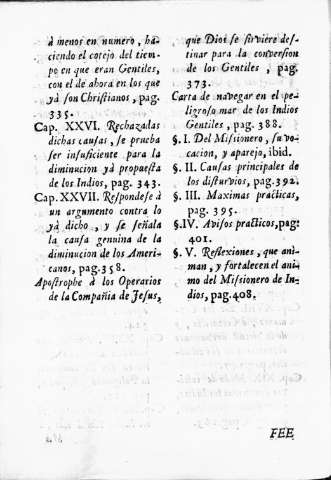 à menos en numero, ha-
ciendo el cotejo del tiem-
po en que eran Gentiles,
con el de ahora en los que
yà son Christianos, pag.
335.
Cap. XXVI. Rechazadas
dichas causas, se prueba
ser insuficiente para la
diminucion yà propuesta
de los Indios, pag. 343.
Cap. XXVII. Respondese à
un argumento contra lo
yà dicho, y se señala
la causa genuina de la
diminucion de los Ameri-
canos, pag. 358.
Apostrophe à los Operarios
de la Compañia de Jesus,
que Dios se sirviere des-
tinar para la conversion
de los Gentiles, pag.
373.
Carta de navegar en el pe-
ligroso mar de los Indios
Gentiles, pag. 388.
§. I. Del Missionero, su vo-
cacion, y aparejo, ibid.
§. II. Causas principales de
los disturvios, pag. 392.
§. III. Maximas practicas,
pag. 395.
§. IV. Avisos practicos, pag.
401.
§. V. Reflexiones, que ani-
man, y fortalecen el ani-
mo del Missionero de In-
dios, pag. 408.
FEE